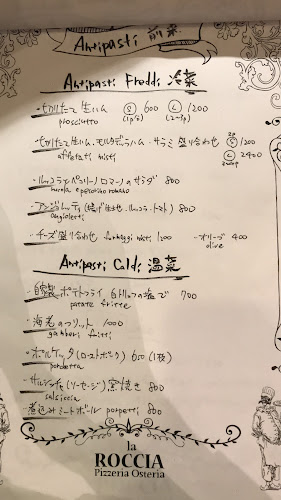 Antipasti 前菜
Antipasti Freddi 冷菜
・切りたて生ハム Ⓢ 600 Ⓛ 1200
prosciutto (1p) (2~3p)
切りたて生ハム、モルタデッラハム・サラミ 盛り合わせ Ⓢ 1200
affettati misti Ⓛ 2400
・ルッコラとペコリーノロマーノのサラダ 800
rucola e pecorino romano
・アンジョレッティ(揚げ生地・ルッコラ・トマト) 800
angioletti
・チーズ盛り合わせ formaggi misti 1200 ・オリーブ 400
olive
Antipasti Caldi 温菜
・自家製ポテトフライ 白トリュフの塩で 700
patate fritte
・海老のフリット 1000
gamberi fritti
・ポルケッタ(ローストポーク) 600 (1枚)
porchetta
・サルシッチャ(ソーセージ)窯焼き 800
salsiccia
・煮込みミートボール porpetti 800
la
ROCCIA
Pizzeria Osteria